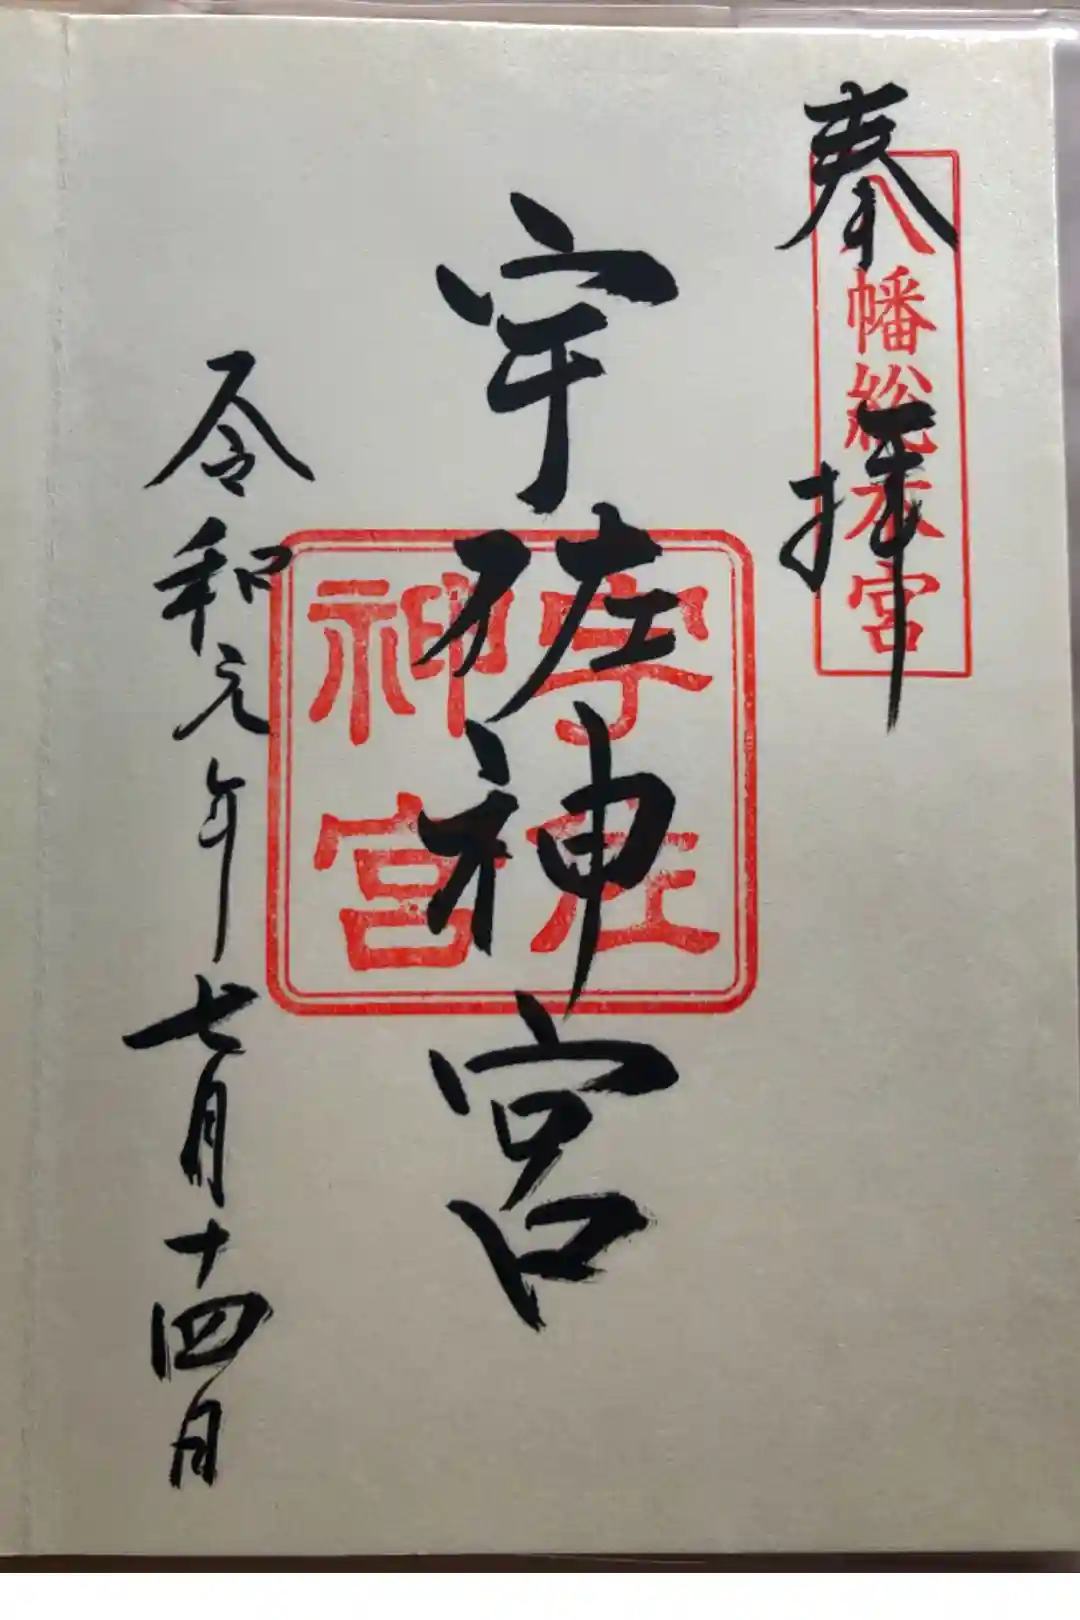 奉拝
八幡総本宮
宇佐神宮
宇佐
神宮
令和元年七月十四日